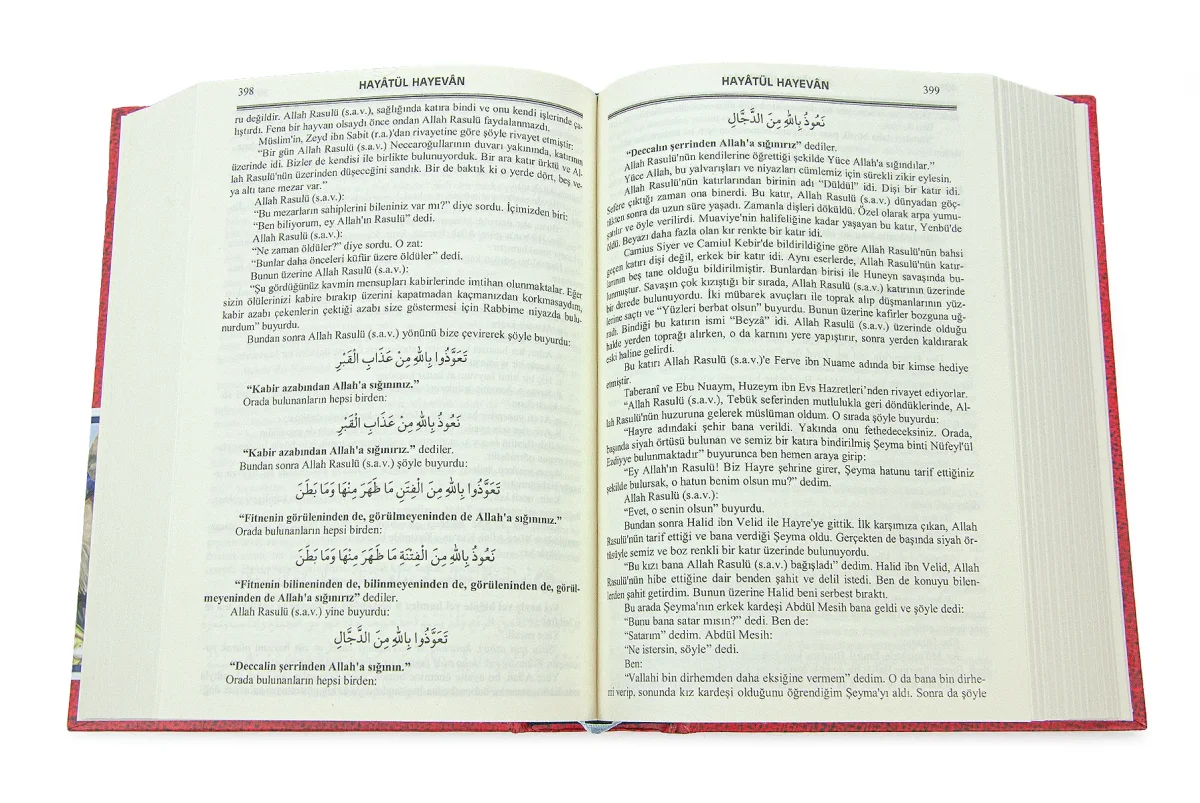 398
HAYÂTÜL HAYEVÂN
ru değildir. Allah Rasulü (s.a.v.), sağlığında katıra bindi ve onu kendi işlerinde ça-
lıştırdı. Fena bir hayvan olsaydı önce ondan Allah Rasulü faydalanmazdı.
Müslim'in, Zeyd ibn Sabit (r.a.)'dan rivayetine göre şöyle rivayet etmiştir:
“Bir gün Allah Rasulü (s.a.v.) Neccaroğullarının duvarı yakınında, katırının
üzerinde idi. Bizler de kendisi ile birlikte bulunuyorduk. Bir ara katır ürktü ve Al-
lah Rasulü'nün üzerinden düşeceğini sandık. Bir de baktık ki o yerde dört, beş ve-
ya altı tane mezar var.”
Allah Rasulü (s.a.v.):
“Bu mezarların sahiplerini bileniniz var mı?” diye sordu. İçimizden biri:
“Ben biliyorum, ey Allah'ın Rasulü” dedi.
Allah Rasulü (s.a.v.):
“Ne zaman öldüler?” diye sordu. O zat:
“Bunlar daha önceleri küfür üzere öldüler” dedi.
Bunun üzerine Allah Rasulü (s.a.v.):
“Şu gördüğünüz kavmin mensupları kabirlerinde imtihan olunmaktalar. Eğer
sizin ölülerinizi kabire bırakıp üzerini kapatmadan kaçmanızdan korkmasaydım,
kabir azabı çekenlerin çektiği azabı size göstermesi için Rabbime niyazda bulu-
nurdum” buyurdu.
Bundan sonra Allah Rasulü (s.a.v.) yönünü bize çevirerek şöyle buyurdu:
تَعَوَّذُوا بِاللهِ مِنْ عَذَابِ الْقَبْرِ
“Kabir azabından Allah'a sığınınız.”
Orada bulunanların hepsi birden:
نَعُوذُ بِاللهِ مِنْ عَذَابِ الْقَبْرِ
“Kabir azabından Allah'a sığınırız.” dediler.
Bundan sonra Allah Rasulü (s.a.v.) şöyle buyurdu:
تَعَوَّذُوا بِاللهِ مِنَ الْفِتَنِ مَا ظَهَرَ مِنْهَا وَمَا بَطَنَ
“Fitnenin görüleninden de, görülmeyeninden de Allah'a sığınınız.”
Orada bulunanların hepsi birden:
نَعُوذُ بِاللهِ مِنَ الْفِتْنَةِ مَا ظَهَرَ مِنْهَا وَمَا بَطَنَ
“Fitnenin bilineninden de, bilinmeyeninden de, görüleninden de, görül-
meyeninden de Allah'a sığınırız” dediler.
Allah Rasulü (s.a.v.) yine buyurdu:
تَعَوَّذُوا بِاللهِ مِنَ الدَّجَّالِ
“Deccalin şerrinden Allah'a sığının.”
Orada bulunanların hepsi birden:
HAYÂTÜL HAYEVÂN
399
نَعُوذُ بِاللهِ مِنَ الدَّجَّالِ
“Deccalın şerrinden Allah'a sığınırız” dediler.
Allah Rasulü'nün kendilerine öğrettiği şekilde Yüce Allah'a sığındılar.”
Yüce Allah, bu yalvarışları ve niyazları cümlemiz için sürekli zikir eylesin.
Allah Rasulü'nün katırlarından birinin adı “Düldül” idi. Dişi bir katır idi.
Sefere çıktığı zaman ona binerdi. Bu katır, Allah Rasulü (s.a.v.) dünyadan göç-
tükten sonra da uzun süre yaşadı. Zamanla dişleri döküldü. Özel olarak arpa yumu-
şatılır ve öyle verilirdi. Muaviye'nin halifeliğine kadar yaşayan bu katır, Yenbü'de
öldü. Beyazı daha fazla olan kır renkte bir katır idi.
Camius Siyer ve Camiul Kebir'de bildirildiğine göre Allah Rasulü'nün bahsi
geçen katırı dişi değil, erkek bir katır idi. Aynı eserlerde, Allah Rasulü'nün katır-
larının beş tane olduğu bildirilmiştir. Bunlardan birisi ile Huneyn savaşında bu-
lunmuştur. Savaşın çok kızıştığı bir sırada, Allah Rasulü (s.a.v.) katırının üzerinde
bir derede bulunuyordu. İki mübarek avuçları ile toprak alıp düşmanlarının yüz-
lerine saçtı ve “Yüzleri berbat olsun” buyurdu. Bunun üzerine kafirler bozguna uğ-
radı. Bindiği bu katırın ismi “Beyzâ” idi. Allah Rasulü (s.a.v.) üzerinde olduğu
halde yerden toprağı alırken, o da karnını yere yapıştırır, sonra yerden kaldırarak
eski haline gelirdi.
Bu katırı Allah Rasulü (s.a.v.)'e Ferve ibn Nuame adında bir kimse hediye
etmiştir.
Taberanî ve Ebu Nuaym, Huzeym ibn Evs Hazretleri’nden rivayet ediyorlar.
“Allah Rasulü (s.a.v.), Tebük seferinden mutlulukla geri döndüklerinde, Al-
lah Rasulü'nün huzuruna gelerek müslüman oldum. O sırada şöyle buyurdu:
“Hayre adındaki şehir bana verildi. Yakında onu fethedeceksiniz. Orada,
başında siyah örtüsü bulunan ve semiz bir katıra bindirilmiş Şeyma binti Nüfeyl'ül
Ezdiyye bulunmaktadır” buyurunca ben hemen araya girip:
“Ey Allah'ın Rasulü! Biz Hayre şehrine girer, Şeyma hatunu tarif ettiğiniz
şekilde bulursak, o hatun benim olsun mu?” dedim.
Allah Rasulü (s.a.v.):
“Evet, o senin olsun” buyurdu.
Bundan sonra Halid ibn Velid ile Hayre'ye gittik. İlk karşımıza çıkan, Allah
Rasulü'nün tarif ettiği ve bana verdiği Şeyma oldu. Gerçekten de başında siyah ör-
tüsüyle semiz ve boz renkli bir katır üzerinde bulunuyordu.
“Bu kızı bana Allah Rasulü (s.a.v.) bağışladı” dedim. Halid ibn Velid, Allah
Rasulü'nün hibe ettiğine dair benden şahit ve delil istedi. Ben de konuyu bilen-
lerden şahit getirdim. Bunun üzerine Halid beni serbest bıraktı.
Bu arada Şeyma'nın erkek kardeşi Abdül Mesih bana geldi ve şöyle dedi:
“Bunu bana satar mısın?” dedi. Ben de:
“Satarım” dedim. Abdül Mesih:
“Ne istersin, söyle” dedi.
Ben:
“Vallahi bin dirhemden daha eksiğine vermem” dedim. O da bana bin dirhe-
mi verip, sonunda kız kardeşi olduğunu öğrendiğim Şeyma'yı aldı. Sonra da şöyle